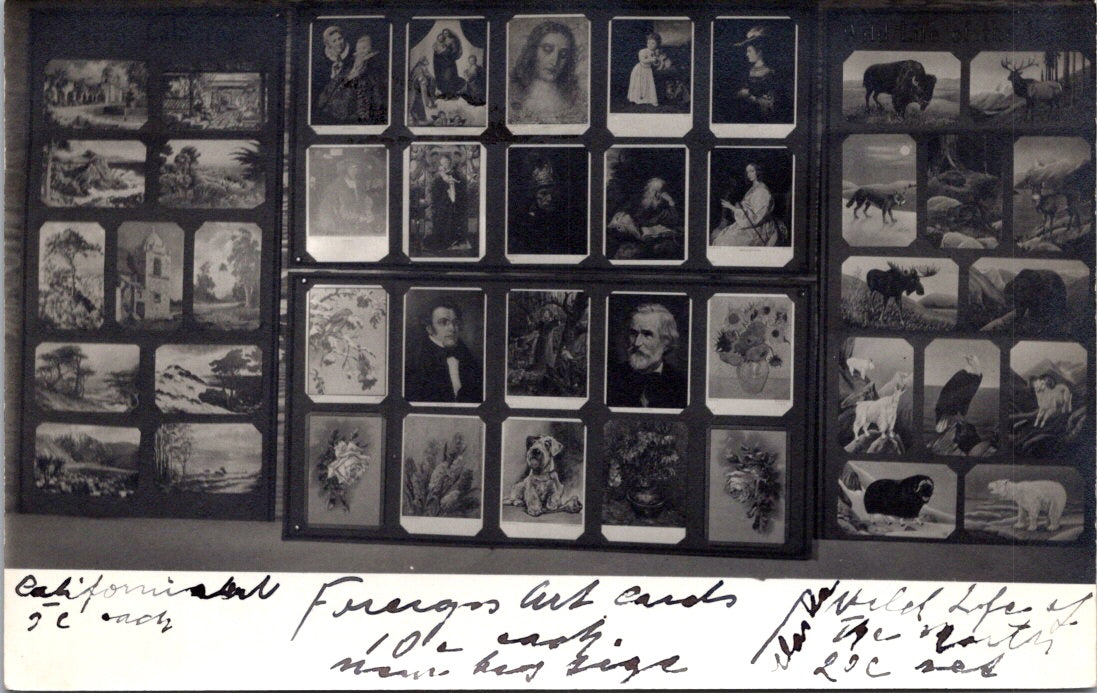 Wild Life of the
California Art
5¢ each
Foreign Art Cards
10¢ each.
size
Alaska
Wild Life of
The North
25c set